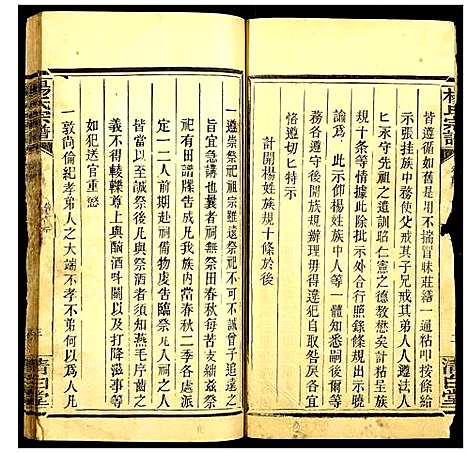 楊氏宗譜
皆遵循如舊是用不揣冒昧莊繕一通粘叩按條給
示張挂族中務使父戒其子兄戒其弟人人遵行
匕永守先祖之遺訓昭仁憲之德教懋矣計粘族
規十條等情據此除批示外合行照錄條規示
諭爲此示仰楊姓族中人等一體知悉嗣後爾等
務各遵守後開族規辦理毋得違犯自取咎戾各宜
恪遵切匕特示
計開楊姓族規十條於後
一遵崇祭祀祖宗雖遠祭祀不可不誠曾子追遠之
旨宜急講也曩者祠無祭田春秋每苦缺薦茲祭
祀有田譜牒告成凡我族內當春秋二季各房派
一二人前期赴祠備物虔告臨祭凡入祠者務其
衣冠以至誠祭後凡與祭酒者須知燕毛序齒之
義不得輕轢尊上與酗酒吽鬬以及打降滋事等
如犯送官重懲
一敦尚倫紀孝弟人之大端不孝不弟何以爲人凡
楊氏宗譜
清白堂
清白堂